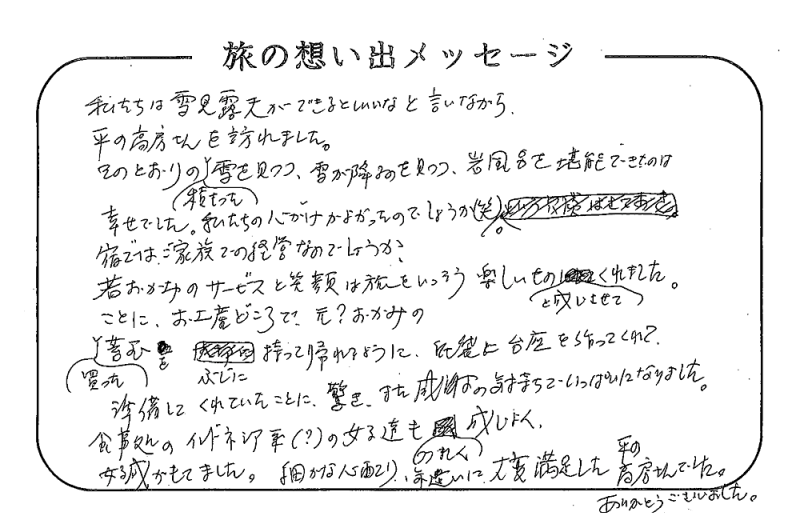 旅の想い出メッセージ
私たちは雪見露天ができるといいなと言いながら、
平の高房さんを訪れました。
そのとおりの積もった雪を見つつ、雪が降るのを見つつ、岩風呂を堪能できたのは
幸せでした。私たちの心がけがよかったのでしょうか(笑)。
宿ではご家族での経営なのでしょうか、
若おかみのサービスと笑顔は旅をいっそう楽しいものと感じさせてくれました。
ことに、お土産どころで、元?おかみの
買った を ぶじに持って帰れるように、段ボールと台座を作ってくれて、
準備してくれていたことに、驚き、また感謝の気持ちでいっぱいになりました。
食事処のインドネシア系(?)の女子達も感じよく、
好感がもてました。細かな心配り、 に大変満足した平の高房さんでした。
ありがとうございました。